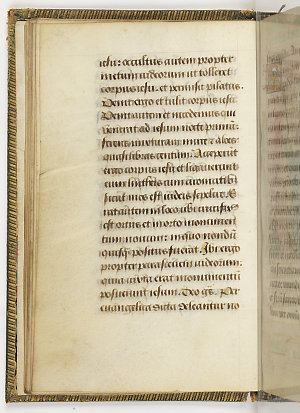 iesu: occultus autem propter
metum iudeorum ut tolleret
corpus iesu. et permisit pilatus.
Venit ergo et tulit corpus iesu.
Venit autem et nicodemus qui
venerat ad iesum nocte primū:
ferens mixturam mirre et aloes
quasi libras centum. Acceperūt
ergo corpus iesu et ligauerunt
eum lintheis cum aromatibꝰ
sicut mos est iudeis sepelire. E
rat autem in loco ubi crucifixꝰ
est ortus et in orto monumen
tum nouum: in quo nondū
quisqȝ positus fuerat. Ibi ergo
propter parasceuem iudeorum:
quia iuxta erat monumentū
posuerunt iesum. Deo gr̄s. Per
euangelica dicta deleantur no